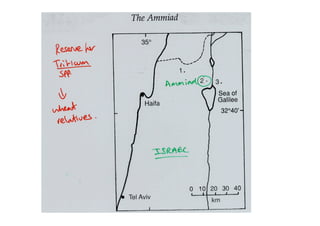 The Ammiad
35°
Reserve for
Triticum
spp
↓
wheat
relatives.
1.
Ammiad 2. 3.
Sea of
Galilee
Haifa
32°40'
ISRAEL
0 10 20 30 40
km
Tel Aviv